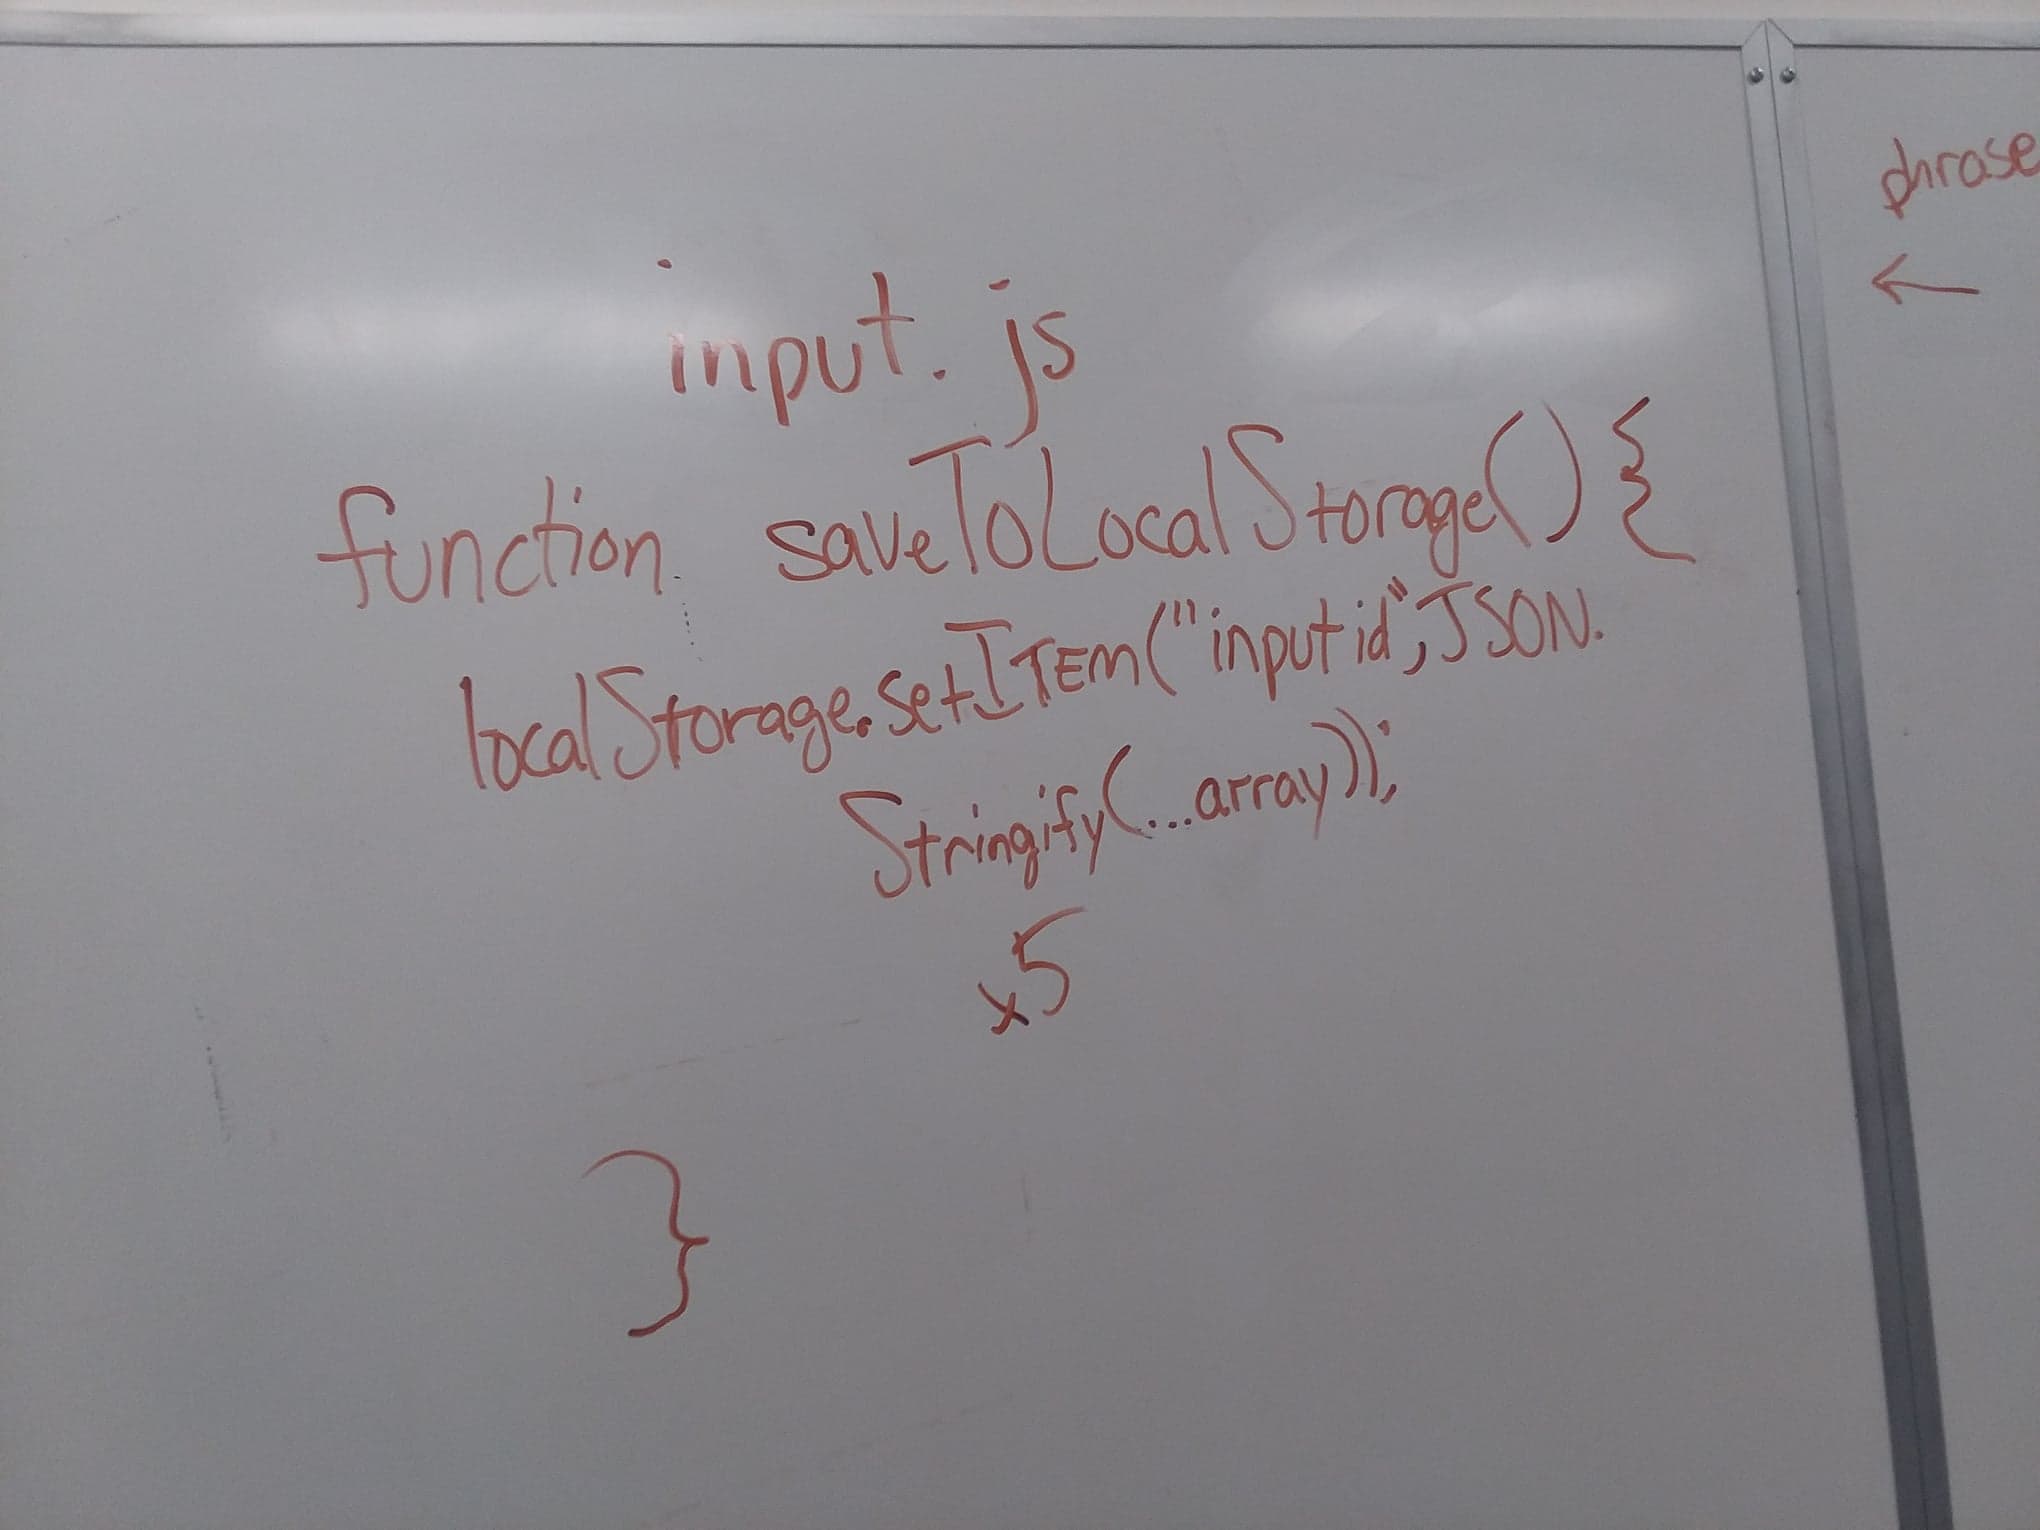 input.js
function saveToLocalStorage() {
localStorage.setITEM("input id", JSON.
Stringify(...array));
x5
}
phrase
←